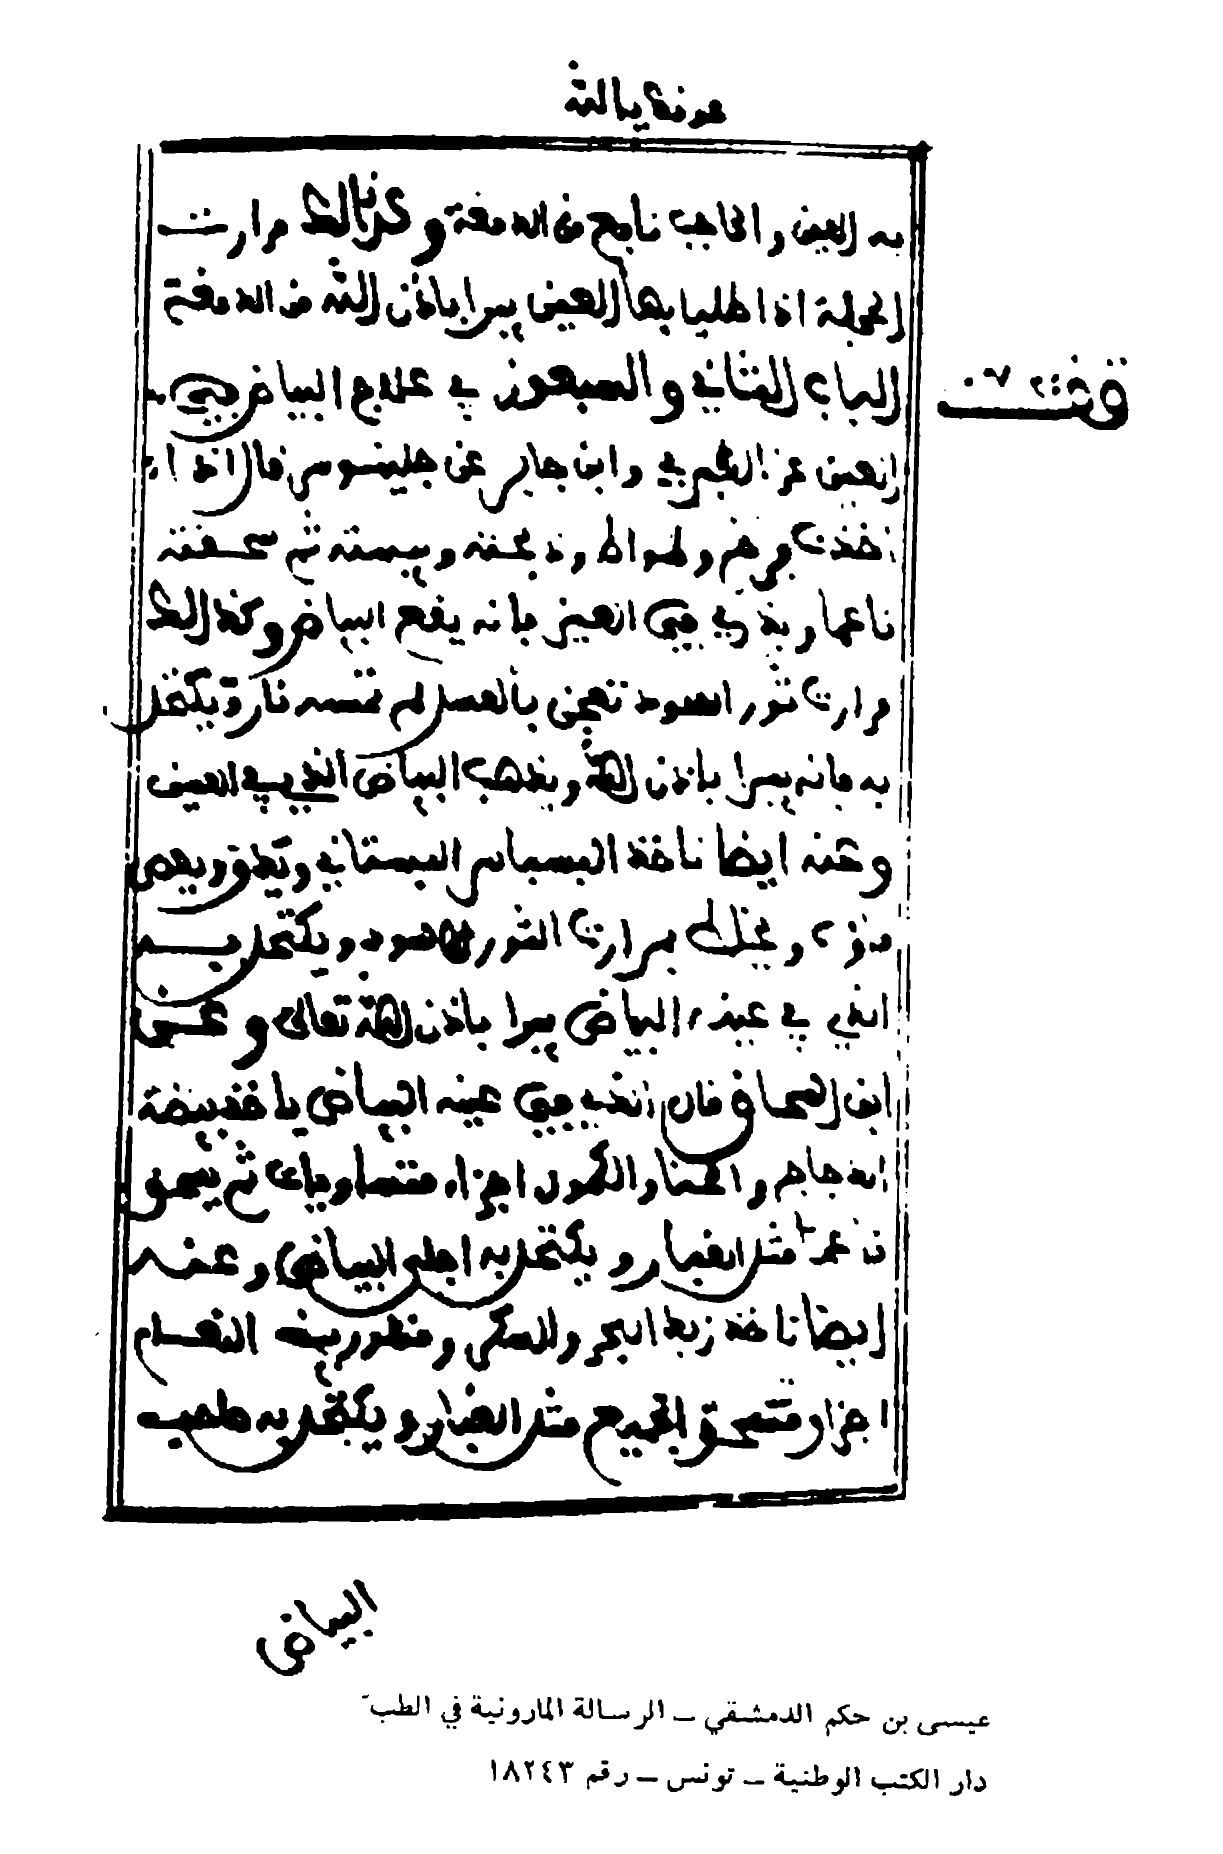 به العين والحاجب نافع من الدمعة وكذالك مرارت
الحجلة اذا طليا بها العين يبرا باذن الله من الدمعة
الباب الثاني والسبعون في علاج البياض في
العين عن الطبري وابن جابر عن جلينوس قال اذا
ناعما ويذر في العين فانه ينفع البياض وكذالك
مرارت ثور اسود تعجن بالعسل لم تمسه نار ويكتحل
به فانه يبرا باذن الله ويذهب البياض الذي في العين
وعنه ايضا تاخذ البسباس البستاني ويعصر
ماؤه ويخلط بمرارت الثور الاسود ويكتحل به
الذي في عينه البياض يبرا باذن الله تعالى وعن
ابن قال الذي في عينه البياض ياخذ بيضة
الدجاج والحنا والكمون اجزاء متساويات ثم يسحق
ناعما مثل الغبار ويكتحل به اجلى البياض وعنه
ايضا تاخذ زبد البحر والسكر النعام
اجزا وتسحق الجميع مثل الغبار ويكتحل به يذهب
البياض
عيسى بن حكم الدمشقي – الرسالة الهارونية في الطب
دار الكتب الوطنية – تونس – رقم ١٨٢٤٣